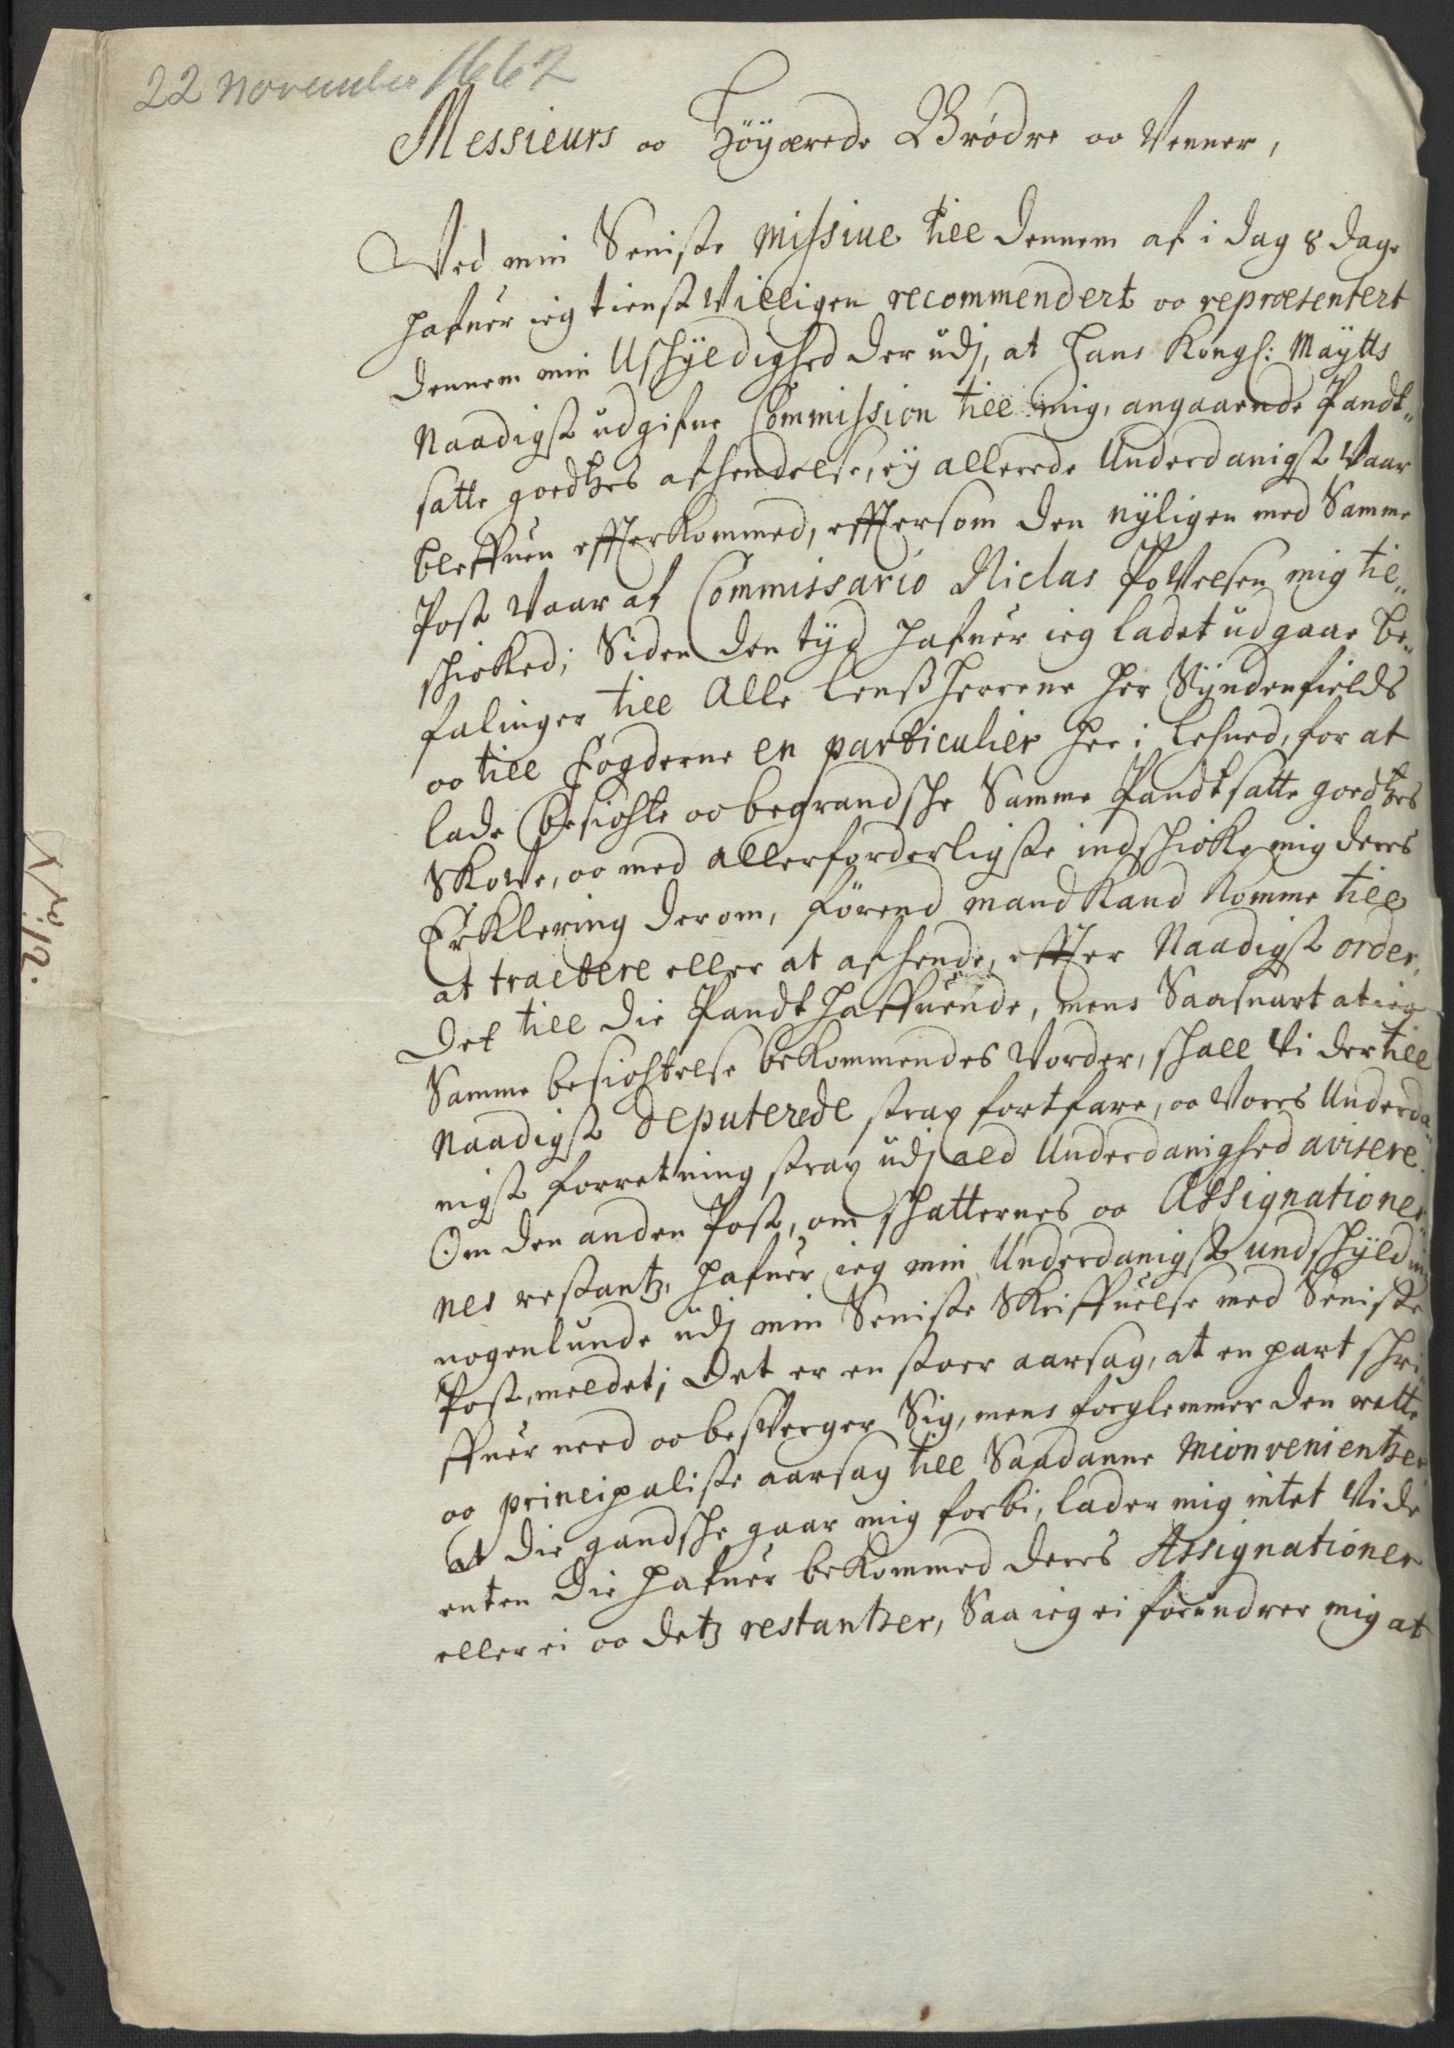 22 November 1662
Messieurs oc Höyærede Brödre oc Venner,
Ved min Seniste Missive till dennem af i dag 8 dage
hafuer ieg tienstvilligen recommendert oc repræsentert
dennem min Uschyldighed der udj, at Hans Kongl: Maÿtts
Naadigst udgifne Commission till mig, angaaende Pandt„
satte goedtzes afhendelse, eÿ allerede Underdanigst Vaar
bleffuen effterkommed, efftersom den nÿligen med Samme
Post Vaar af Commissario Niclas Povelsen mig til„
schicked; Siden den tÿd hafuer ieg ladet udgaae be„
falinger till Alle Lenssherrene her Sÿndenfields
oc till Fogderne en particulier her i Lehned, for at
lade besichte oc begrandsche Samme Pandtsatte goedtzes
Skove, oc med allerforderligste indschicke mig deres
Erklering derom, förend mand kand komme till
at tractere eller at afhende, effter Naadigst order,
Det till die Pandthaffuende, mens Saasnart at ieg
Samme besichtelse bekommendes Vorder, schall Vi der till
Naadigst deputerede strax fortfare, oc Vores Underda„
nigst forretning strax udj all Underdanighed avisere.
Om den anden Post, om schatternes oc Assignationer„
nes restantz, hafuer ieg min Underdanigst undschÿlding
nogenlunde udj min Seniste Skriffuelse med Seniste
Post, meldet; Det er en stoer aarsag, at en part schri„
ffuer need oc besverger Sig, mens forglemmer den rette
oc principaliste aarsag till Saadanne inconvenientzer,
at die gandsche gaar mig forbi, lader mig intet Vide
enten die hafuer bekommed deres Assignationer
eller ei oc detz restantzer, Saa ieg ei forundrer mig at